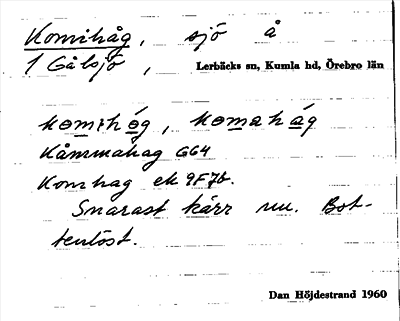 Komihåg, sjö å
1 Gålsjö, Lerbäcks sn, Kumla hd, Örebro län
komihóg, komahág
Kåmmahag G64
Komhag ek 9F7b.
Snarast kärr nu. Bot-
tenlöst.
Dan Höjdestrand 1960